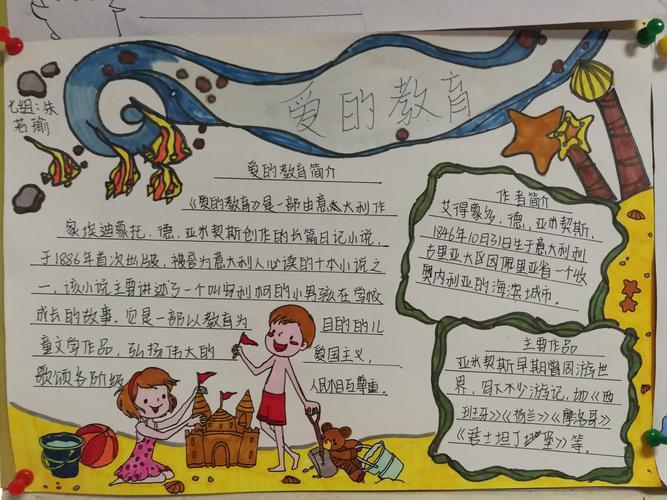 爱的教育
七组:朱
若瑜
爱的教育简介
《爱的教育》是一部由意大利作
家埃迪蒙托·德·亚米契斯创作的长篇日记小说,
于1886年首次出版,被誉为意大利人必读的十本小说之
一,该小说主要讲述了一个叫安利柯的小男孩在学校
成长的故事。它是一部以教育为目的的儿
童文学作品,弘扬伟大的爱国主义,
歌颂各阶级人民相互尊重。
作者简介
艾得蒙多,德,亚米契斯,
1846年10月31日生于意大利利
古里亚大区因佩里亚省一个
奥内利亚的海滨城市。
主要作品
亚米契斯早期曾周游世
界,写大不少游记,如《西
班牙》《荷兰》《摩洛哥》
《君士坦丁堡》等。